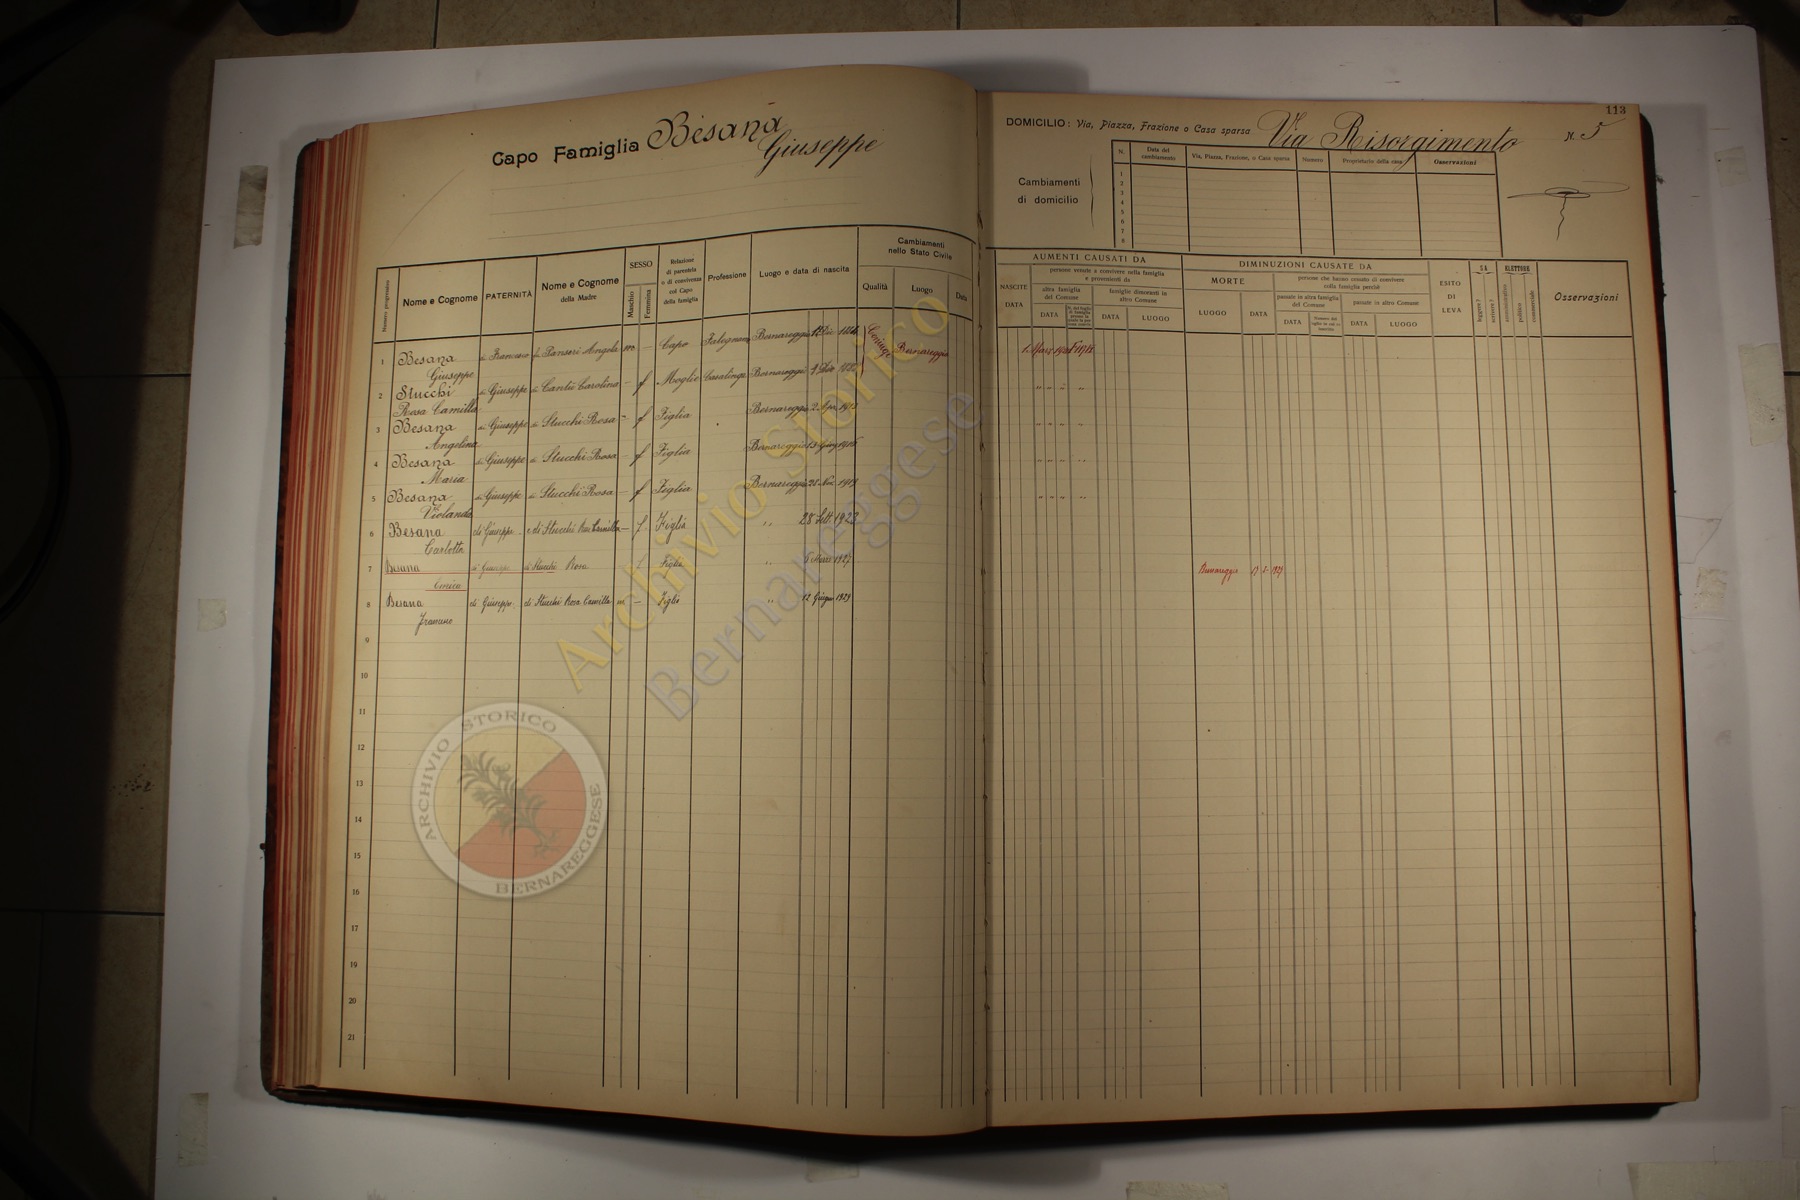 Capo Famiglia Besana
Giuseppe
Numero progressivo
Nome e Cognome
PATERNITÀ
Nome e Cognome
della Madre
SESSO
Maschio
Femmina
Relazione
di parentela
o di convivenza
col Capo
della famiglia
Professione
Luogo e data di nascita
Cambiamenti
nello Stato Civile
Qualità
Luogo
Data
1 Besana di Francesco fu Panseri Angela Capo Falegname Bernareggio
Giuseppe
Coniuge Bernareggio
2 Stucchi di Giuseppe di Cantù Carolina - f Moglie Casalinga Bernareggio
Rosa Camilla
3 Besana di Giuseppe di Stucchi Rosa - f Figlia Bernareggio
Angelina
4 Besana di Giuseppe di Stucchi Rosa - f Figlia Bernareggio
Maria
5 Besana di Giuseppe di Stucchi Rosa - f Figlia Bernareggio
Violanda
6 Besana di Giuseppe e di Stucchi Rosa Camilla - f. Figlia " 28 Sett. 1923
Carlotta
7 Besana di Giuseppe di Stucchi Rosa Figlia "
Enrica
8 Besana di Giuseppe di Stucchi Rosa Camilla m - Figlio " 12 Giugno 1929
9
10
11
12
13
14
15
16
17
18
19
20
21
113
DOMICILIO: Via, Piazza, Frazione o Casa sparsa Via Risorgimento N. 5
Cambiamenti
di domicilio
N.
Data del
cambiamento
Via, Piazza, Frazione, o Casa sparsa
Numero
Proprietario della casa
Osservazioni
1
2
3
4
5
6
7
8
AUMENTI CAUSATI DA
NASCITE
DATA
persone venute a convivere nella famiglia
e provenienti da
altra famiglia
del Comune
DATA
famiglie dimoranti in
altro Comune
DATA
LUOGO
DIMINUZIONI CAUSATE DA
MORTE
LUOGO
DATA
persone che hanno cessato di convivere
nella famiglia perchè
passate in altra famiglia
del Comune
DATA
passate in altro Comune
DATA
LUOGO
ESITO
DI
LEVA
SA
leggere?
scrivere?
ELETTORE
amministrativo
politico
commerciale
Osservazioni
Bernareggio
Archivio Storico
Bernareggese
ARCHIVIO STORICO
BERNAREGGESE